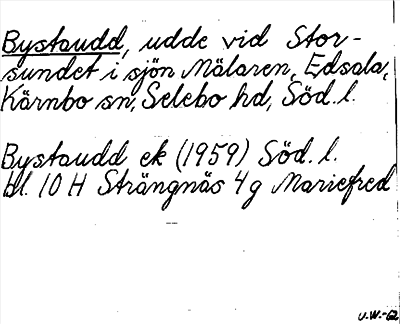 Bystaudd, udde vid Stor-
sundet i sjön Mälaren, Edsala,
Kärnbo sn, Selebo hd, Söd. l.
Bystaudd ek (1959) Söd. l.
bl. 10 H Strängnäs 4 g Mariefred
U.W.-62